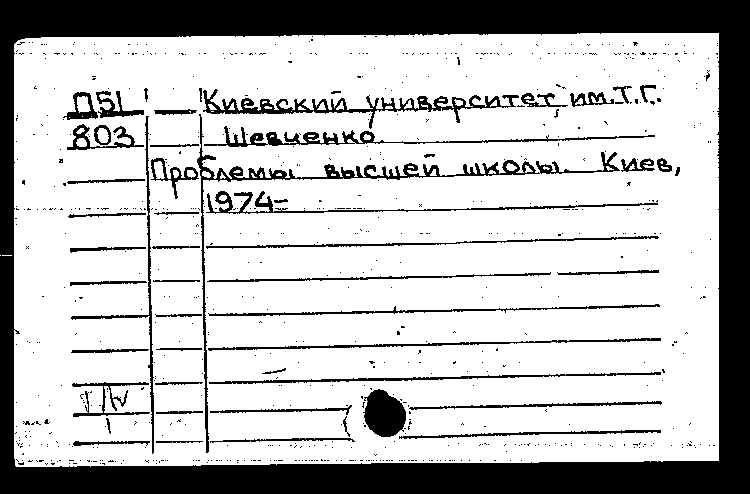 П51 Киевский университет им.Т.Г.
803 Шевченко.
Проблемы высшей школы. Киев,
1974-